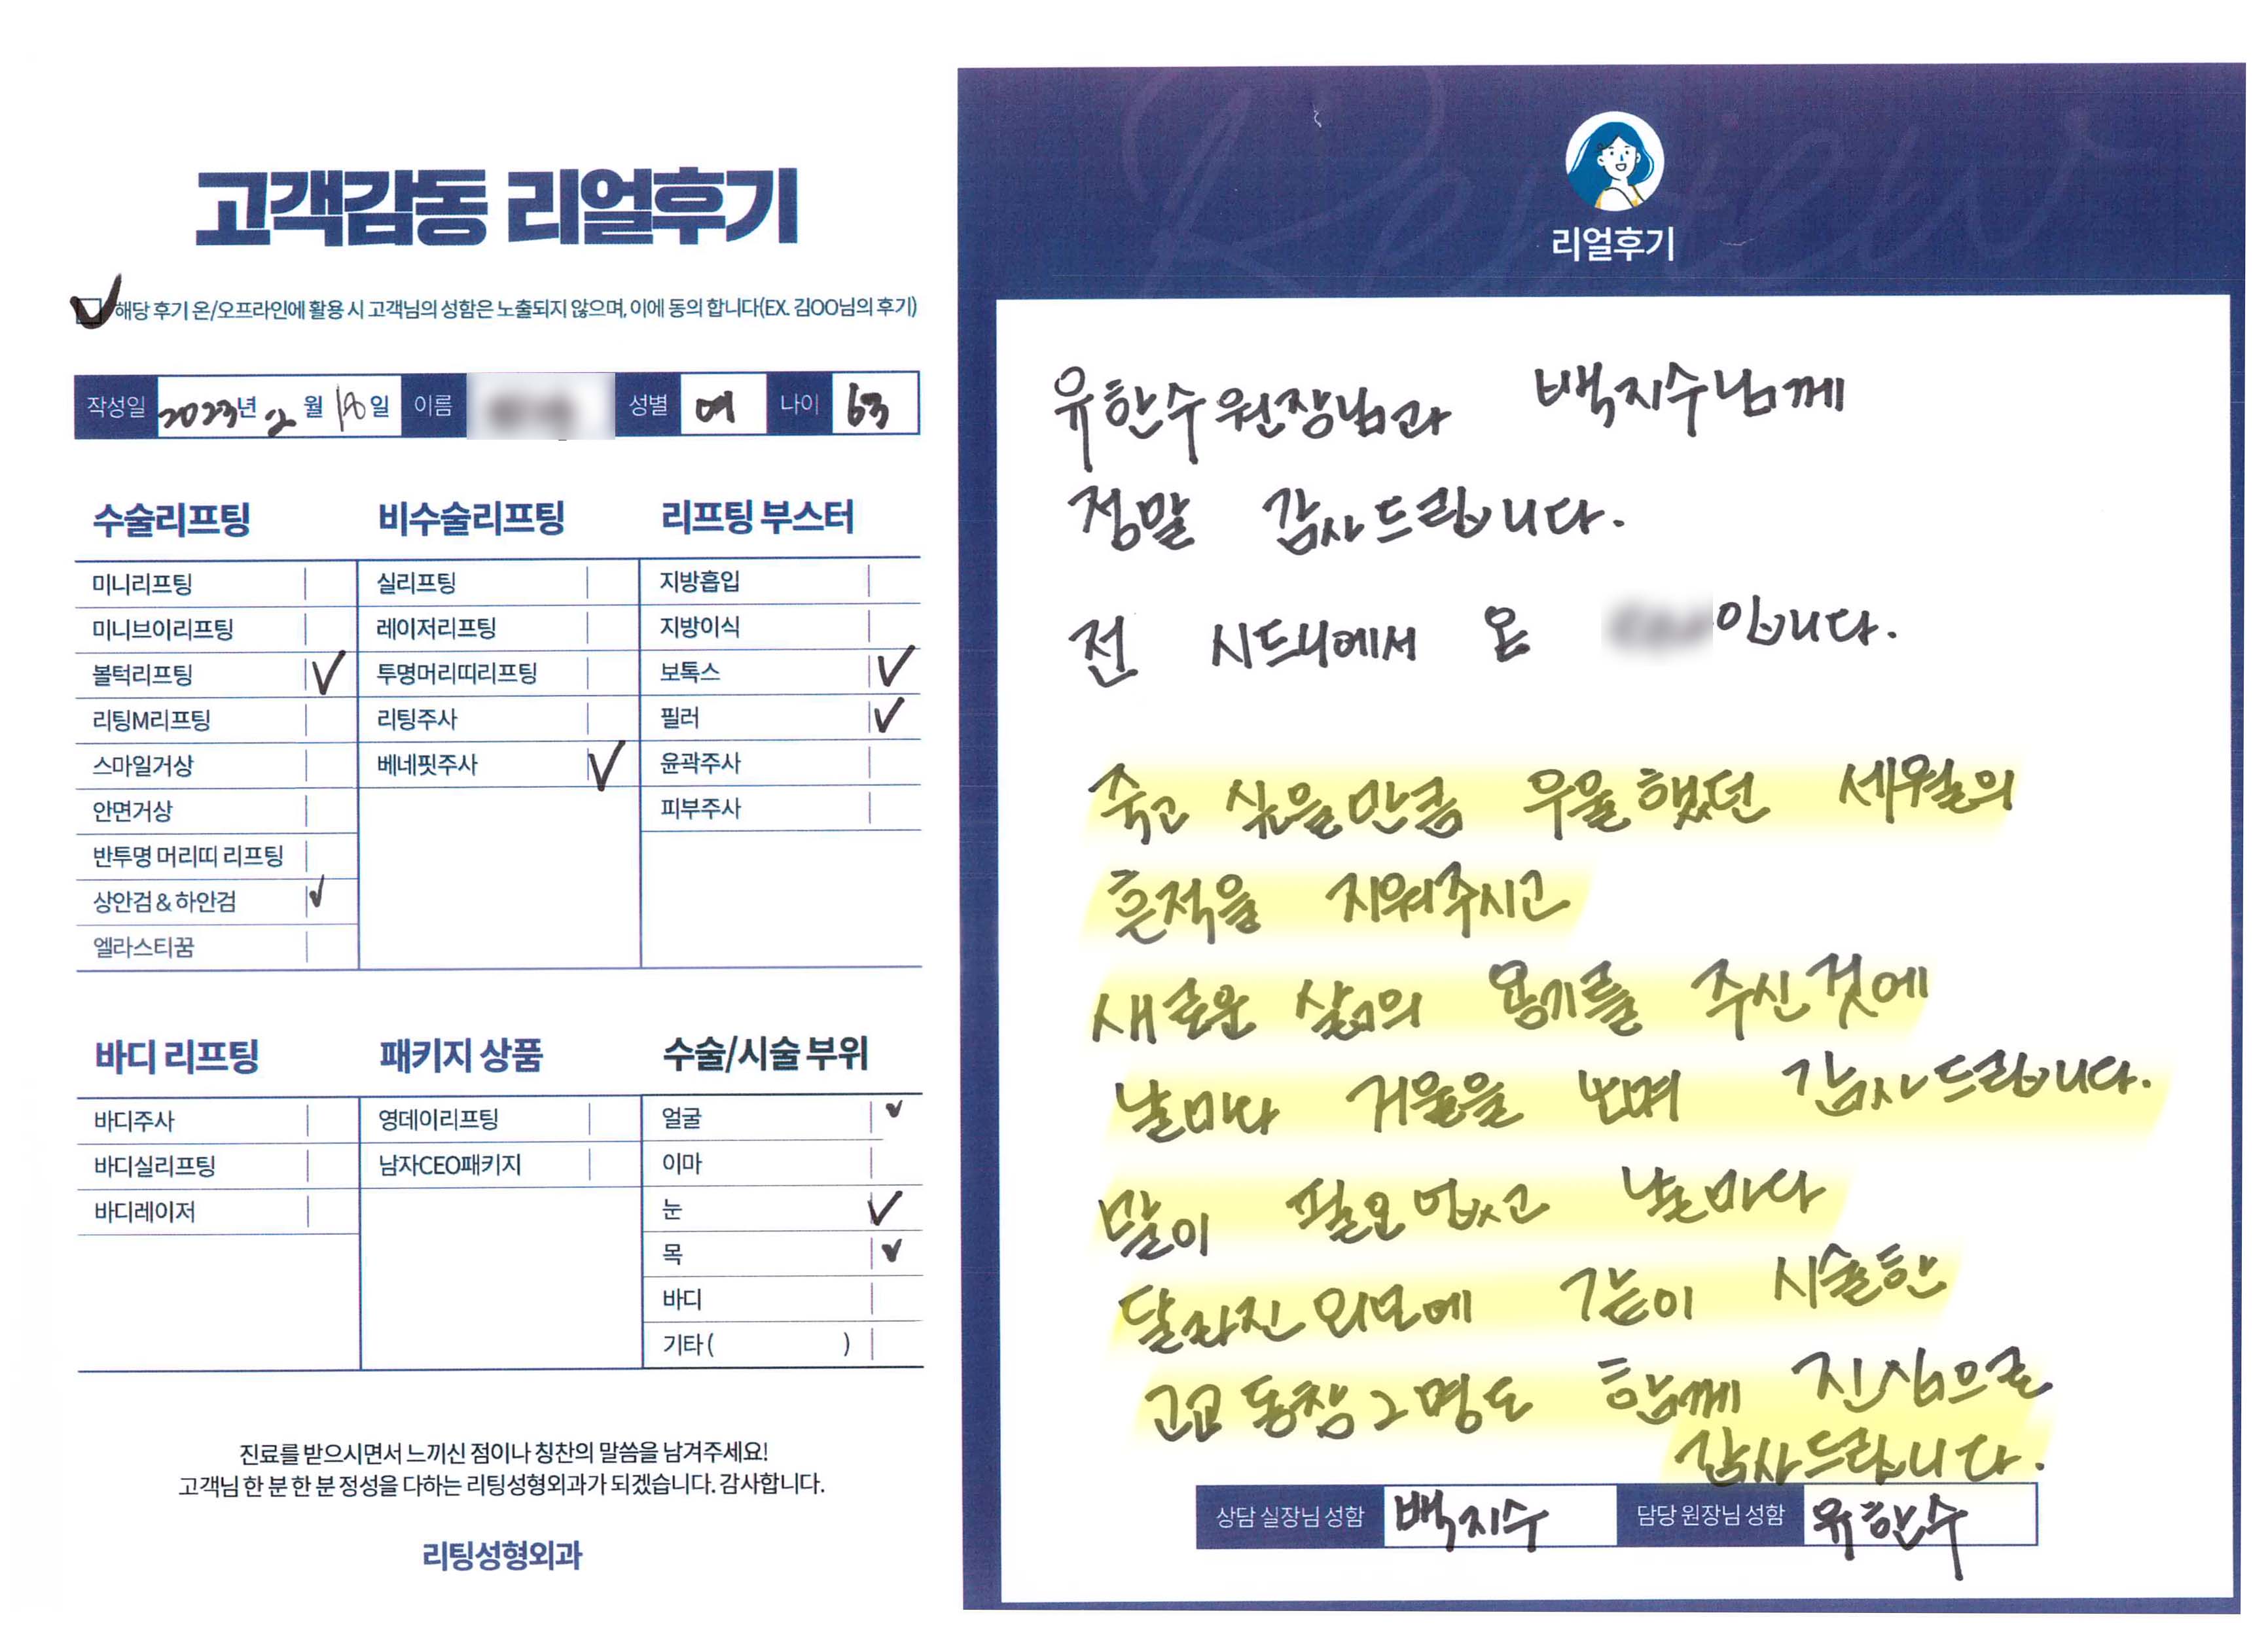 고객감동 리얼후기
해당 후기 온/오프라인에 활용 시 고객님의 성함은 노출되지 않으며, 이에 동의 합니다(EX. 김OO님의 후기)
작성일 2023년 2월 18일 이름 성별 여 나이 63
수술리프팅
미니리프팅
미니브이리프팅
볼턱리프팅 ✓
리팅M리프팅
스마일거상
안면거상
반투명 머리띠 리프팅
상안검 & 하안검 ✓
엘라스티꿈
비수술리프팅
실리프팅
레이저리프팅
투명머리띠리프팅
리팅주사
베네핏주사 ✓
리프팅 부스터
지방흡입
지방이식
보톡스 ✓
필러 ✓
윤곽주사
피부주사
바디 리프팅
바디주사
바디실리프팅
바디레이저
패키지 상품
영데이리프팅
남자CEO패키지
수술/시술 부위
얼굴 ✓
이마
눈 ✓
목 ✓
바디
기타 ( )
진료를 받으시면서 느끼신 점이나 칭찬의 말씀을 남겨주세요!
고객님 한 분 한 분 정성을 다하는 리팅성형외과가 되겠습니다. 감사합니다.
리팅성형외과
Review
리얼후기
유한수원장님과 백지수님께
정말 감사드립니다.
전 시드니에서 온 입니다.
죽고 싶을만큼 우울했던 세월의
흔적을 지워주시고
새로운 삶의 용기를 주신것에
날마다 거울을 보며 감사드립니다.
말이 필요없고 날마다
달라진 외모에 같이 시술한
고교동창2명도 함께 진심으로
감사드립니다.
상담 실장님 성함 백지수 담당 원장님 성함 유한수